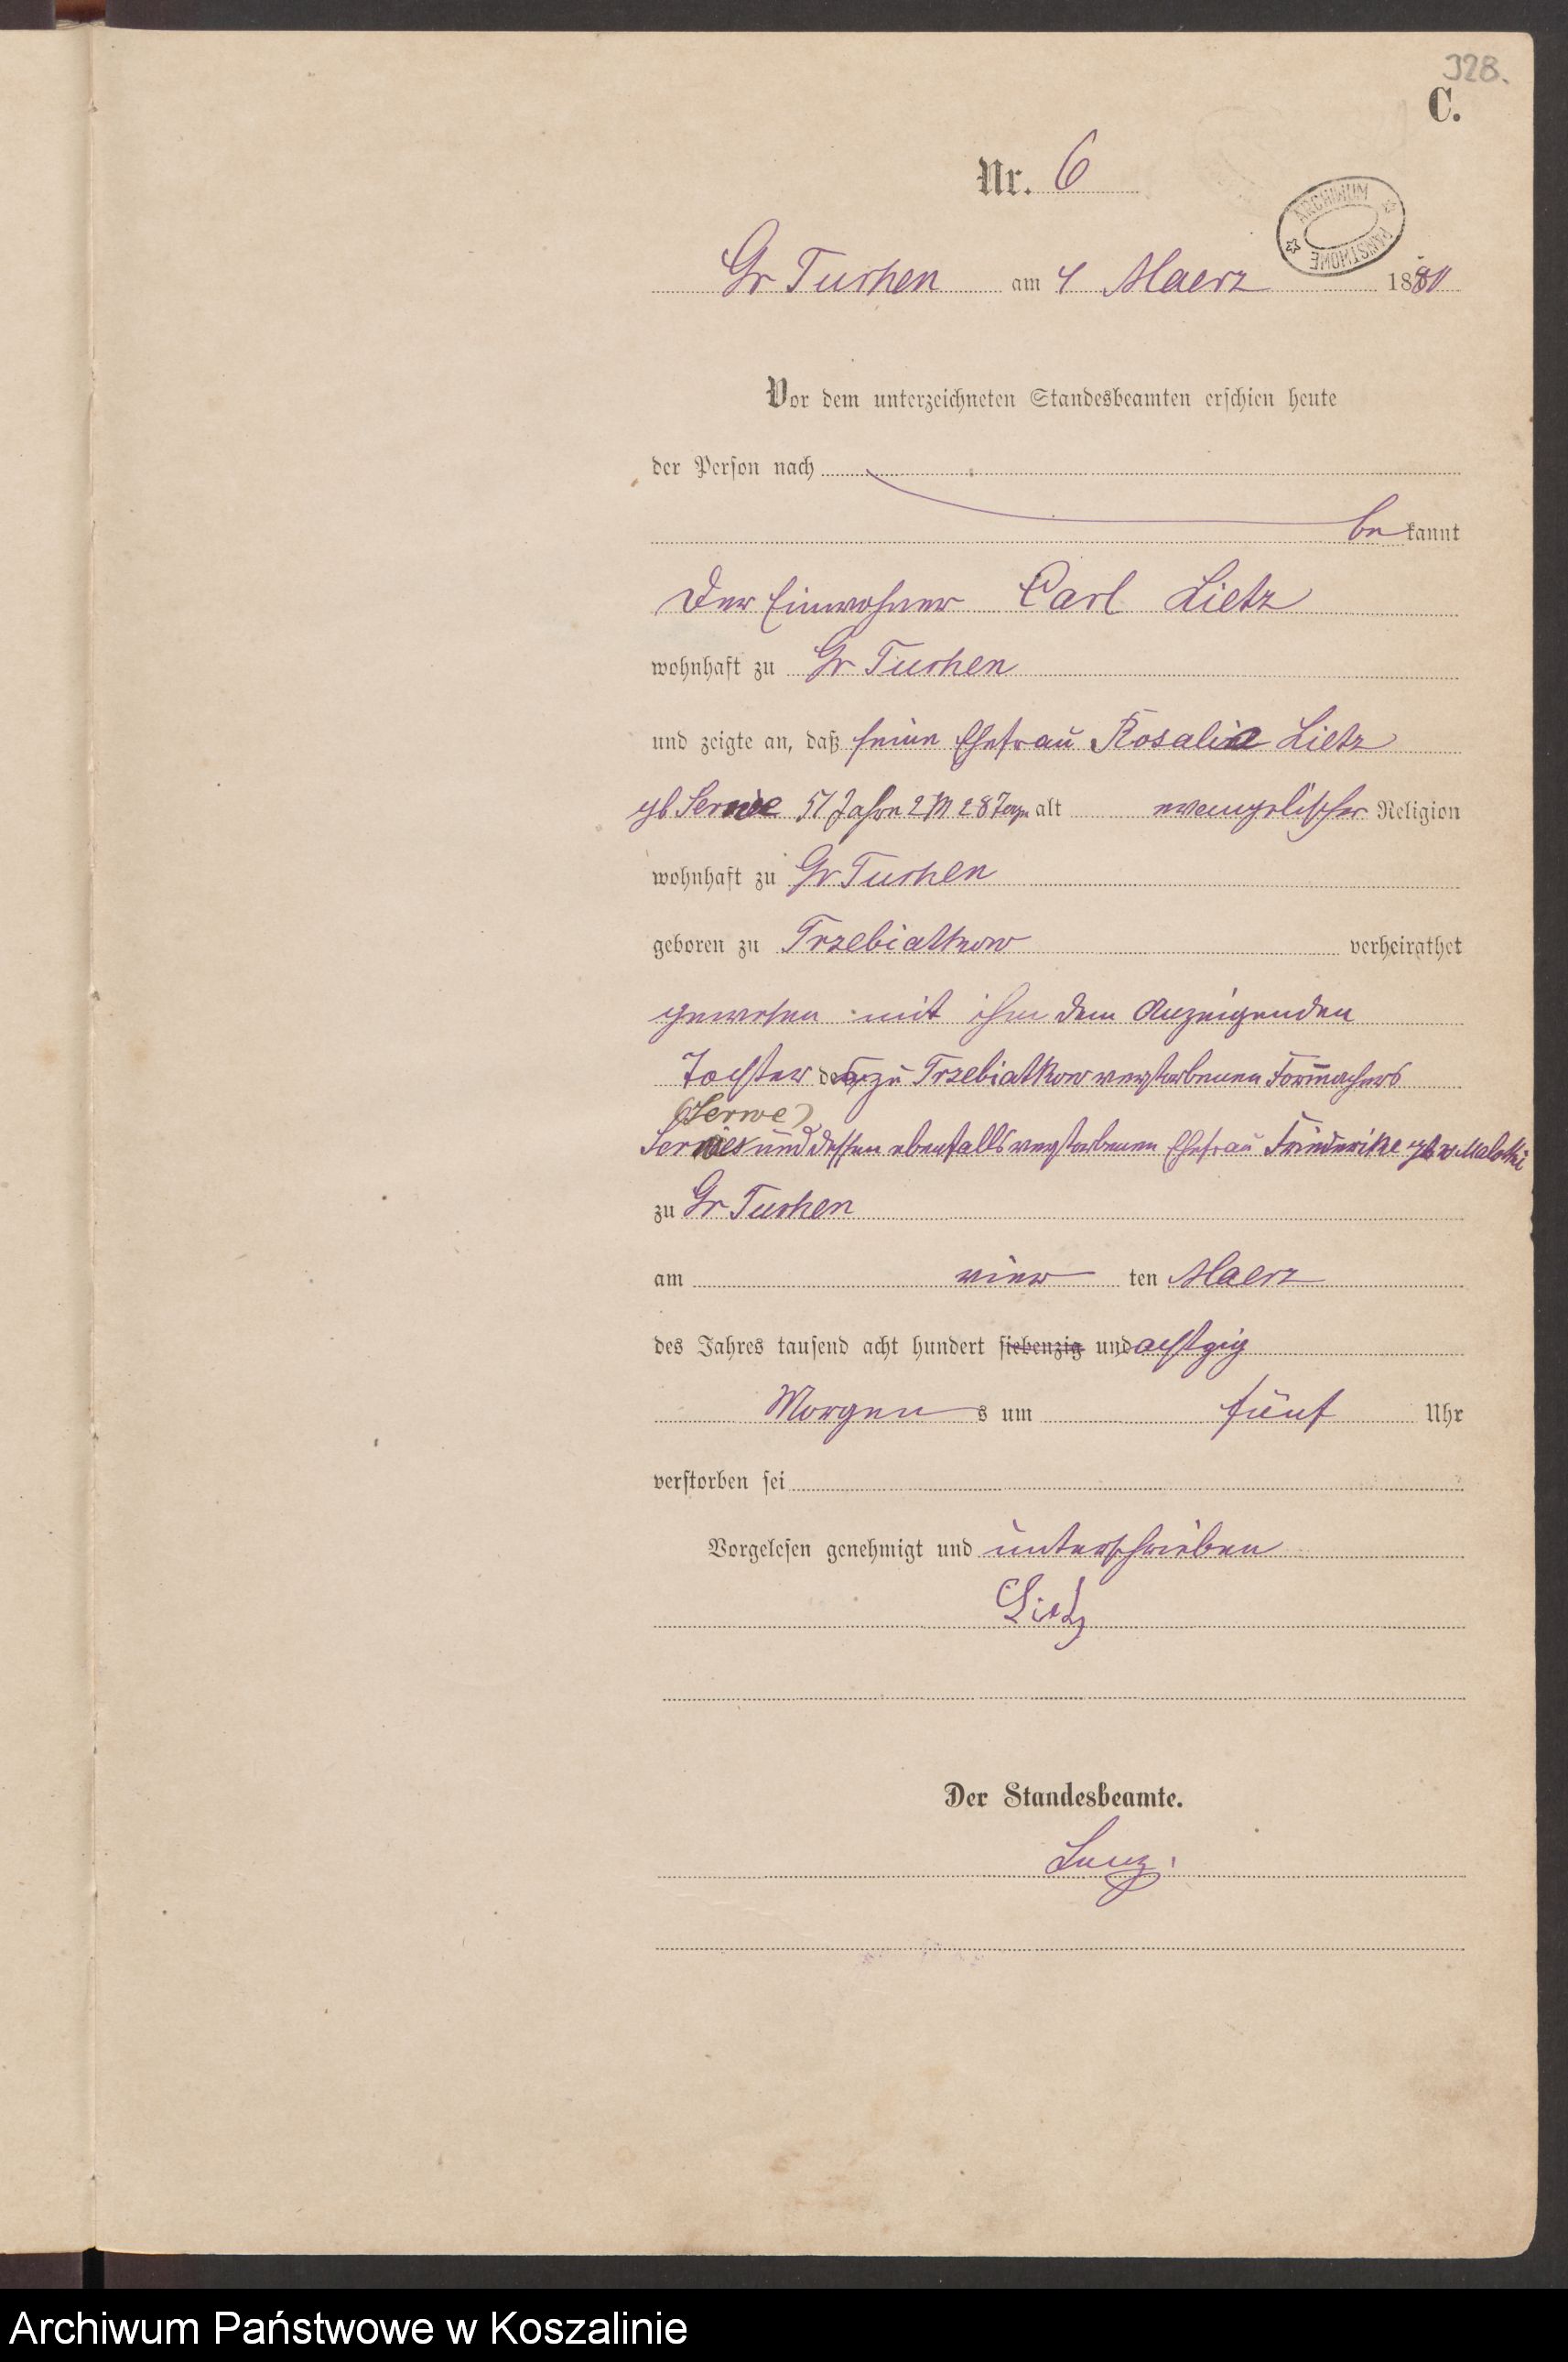 328.
C.
Nr. 6
ARCHIWUM PAŃSTWOWE
Gr Tuchen am 4 Maerz 1880
Vor dem unterzeichneten Standesbeamten erschien heute
der Person nach
be kannt
Der Einwohner Carl Lietz
wohnhaft zu Gr Tuchen
und zeigte an, daß seine Ehefrau Rosalie Lietz
gb Serwe 51 Jahre 2 M 28 Tage alt evangelischer Religion
wohnhaft zu Gr Tuchen
geboren zu Trzebiatkow verheirathet
gewesen mit ihm dem Anzeigenden
Tochter des zu Trzebiatkow verstorbenen
(Serwe)
und dessen ebenfalls verstorbenen Ehefrau Friederike gb v Malotki
zu Gr Tuchen
am vier ten Maerz
des Jahres tausend acht hundert siebenzig und achtzig
Morgen s um fünf Uhr
verstorben sei
Vorgelesen genehmigt und unterschrieben
Lietz
Der Standesbeamte.
Archiwum Państwowe w Koszalinie